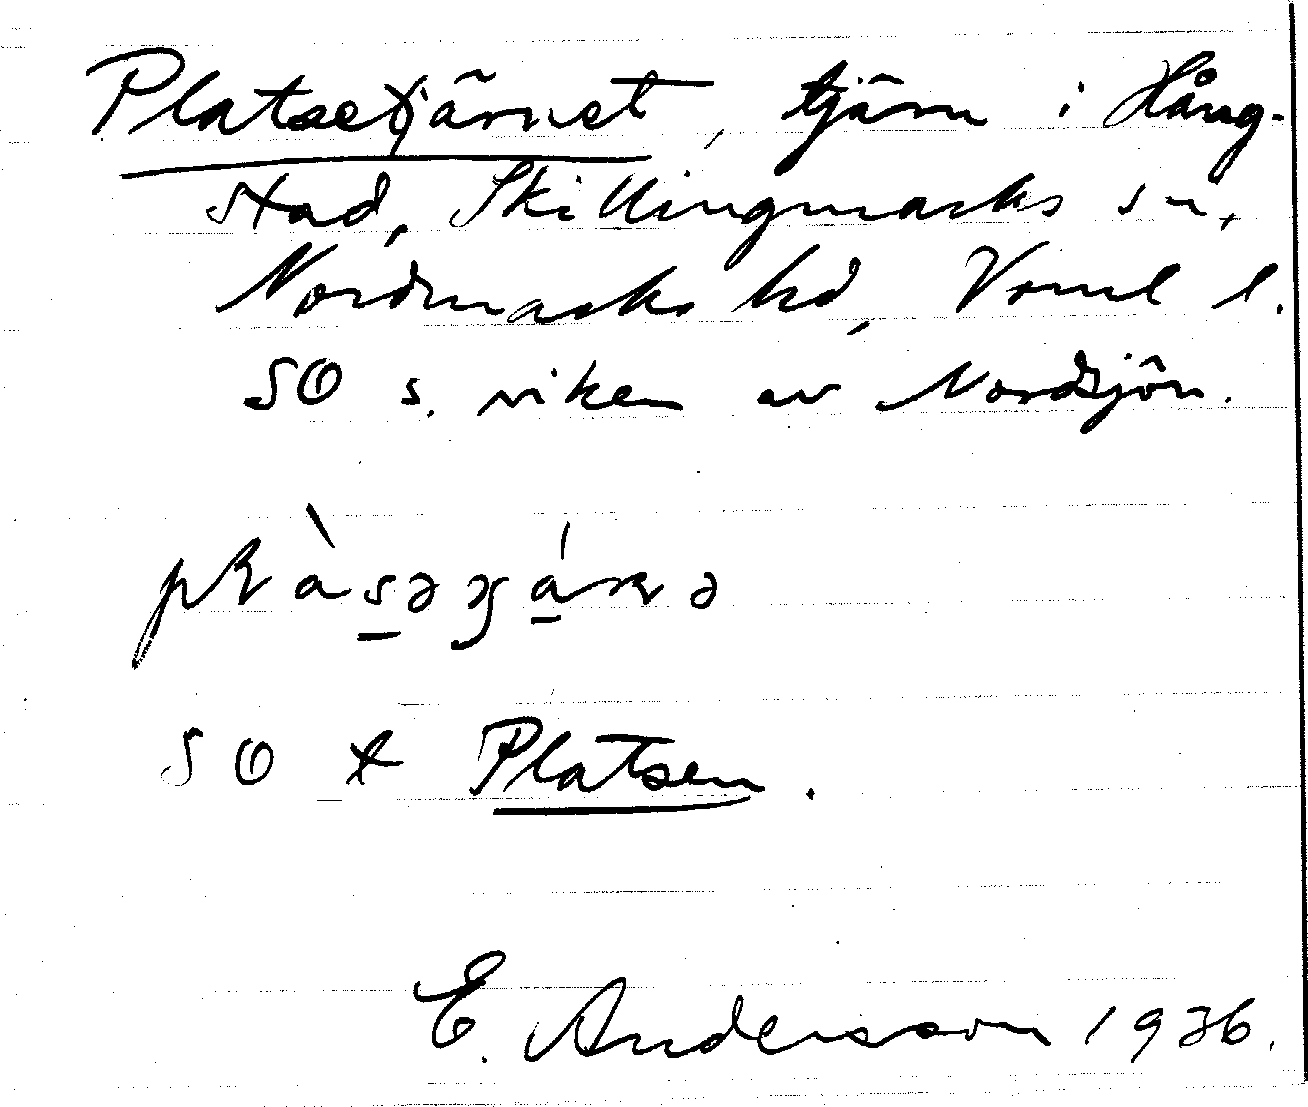 Platsetjärnet, tjärn i Hång-
stad, Skillingmarks sn,
Nordmarks hd, Vrml l.
SO s. viken av Nordsjön.
SO t Platsen.
E. Andersson 1936.